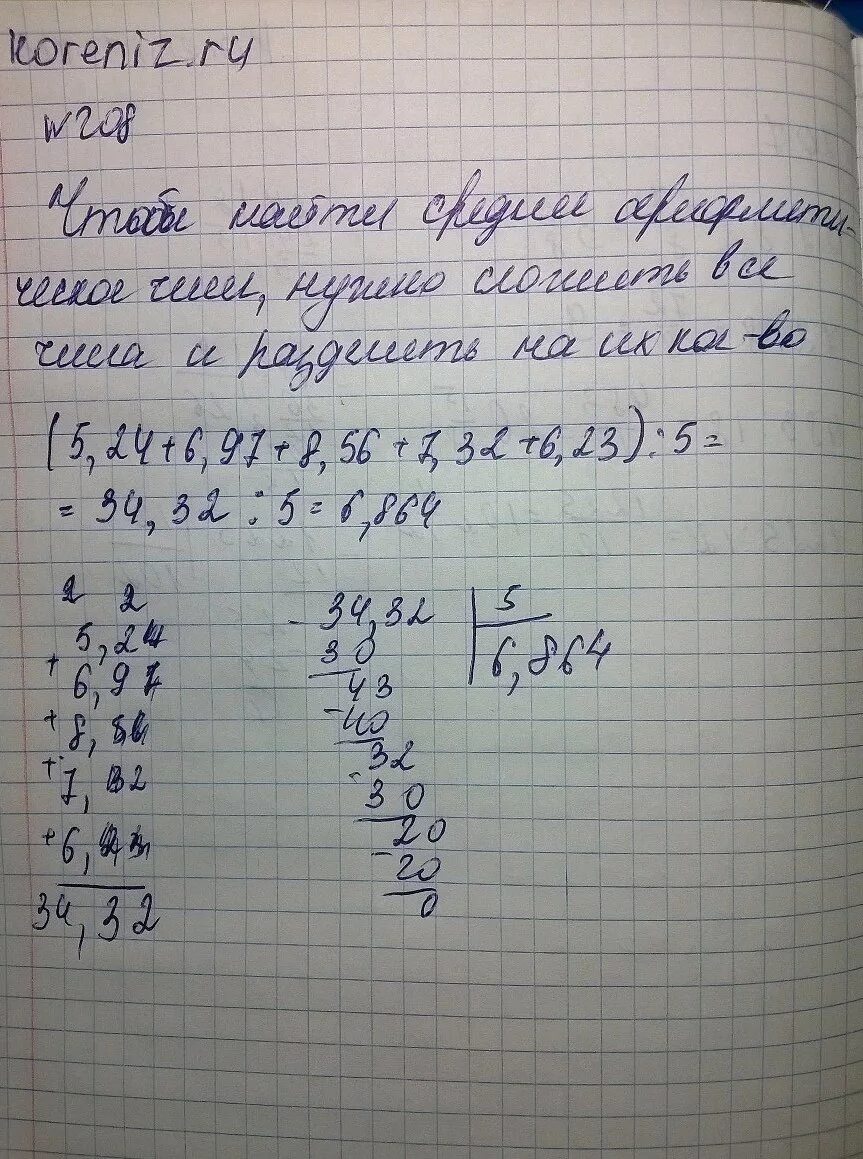 koreniz.ru
N208
Чтобы найти среднее арифмети-
ческое чисел, нужно сложить все
числа и разделить на их кол-во
(5,24+6,97+8,56+7,32+6,23):5=
= 34,32 : 5 = 6,864
2 2
5,24
+ 6,97
+ 8,56
+ 7,32
+ 6,23
34,32
- 34,32 | 5
30 6,864
43
- 40
32
- 30
20
- 20
0